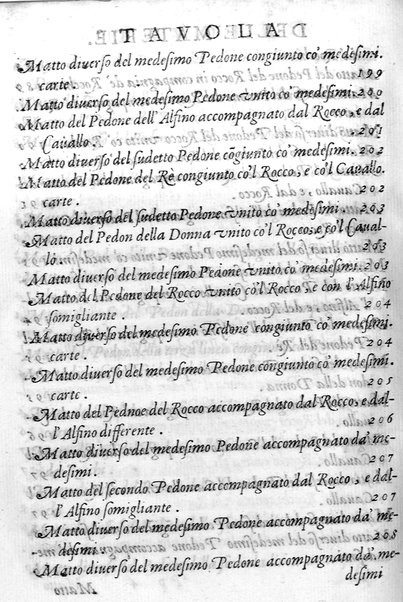 TAVOLA
Matto diuerso del medesimo Pedone congiunto co' medesimi.
carte. 199
Matto diuerso del medesimo Pedone vnito co' medesimi. 200
Matto del Pedone dell' Alfino accompagnato dal Rocco, e dal
Cauallo. 201
Matto diuerso del sudetto Pedone cõgiunto co' medesimi. 202
Matto del Pedone del Re congiunto co'l Rocco, e co'l Cauallo.
carte. 202
Matto diuerso del sudetto Pedone vnito co' medesimi. 203
Matto del Pedon della Donna vnito co'l Rocco, e co'l Caual-
lo. 203
Matto diuerso del medesimo Pedone vnito co' medesimi. 203
Matto del Pedone del Rocco vnito co'l Rocco, e con l'Alfino
somigliante. 204
Matto diuerso del medesimo Pedone congiunto co' medesimi.
carte. 204
Matto diuerso del medesimo Pedone congiunto co' medesimi.
carte. 205
Matto del Pednoe del Rocco accompagnato dal Rocco, e dal-
l'Alfino differente. 206
Matto diuerso del medesimo Pedone accompagnato da' me-
desimi. 207
Matto del secondo Pedone accompagnato dal Rocco, e dal-
l'Alfino somigliante. 207
Matto diuerso del medesimo Pedone accompagnato da' me-
desimi. 208
Matto diuerso del medesimo Pedone accompagnato da' me-
desimi